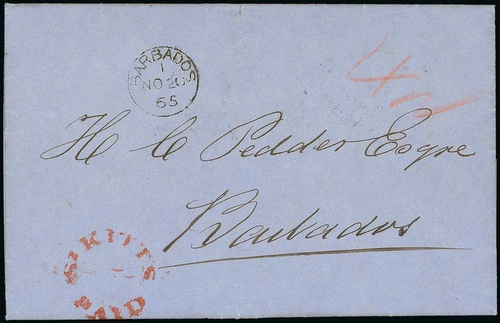 BARBADOS
1
NO 20
65
4
H C Pedder Esqre
Barbados
ST KITTS
PAID